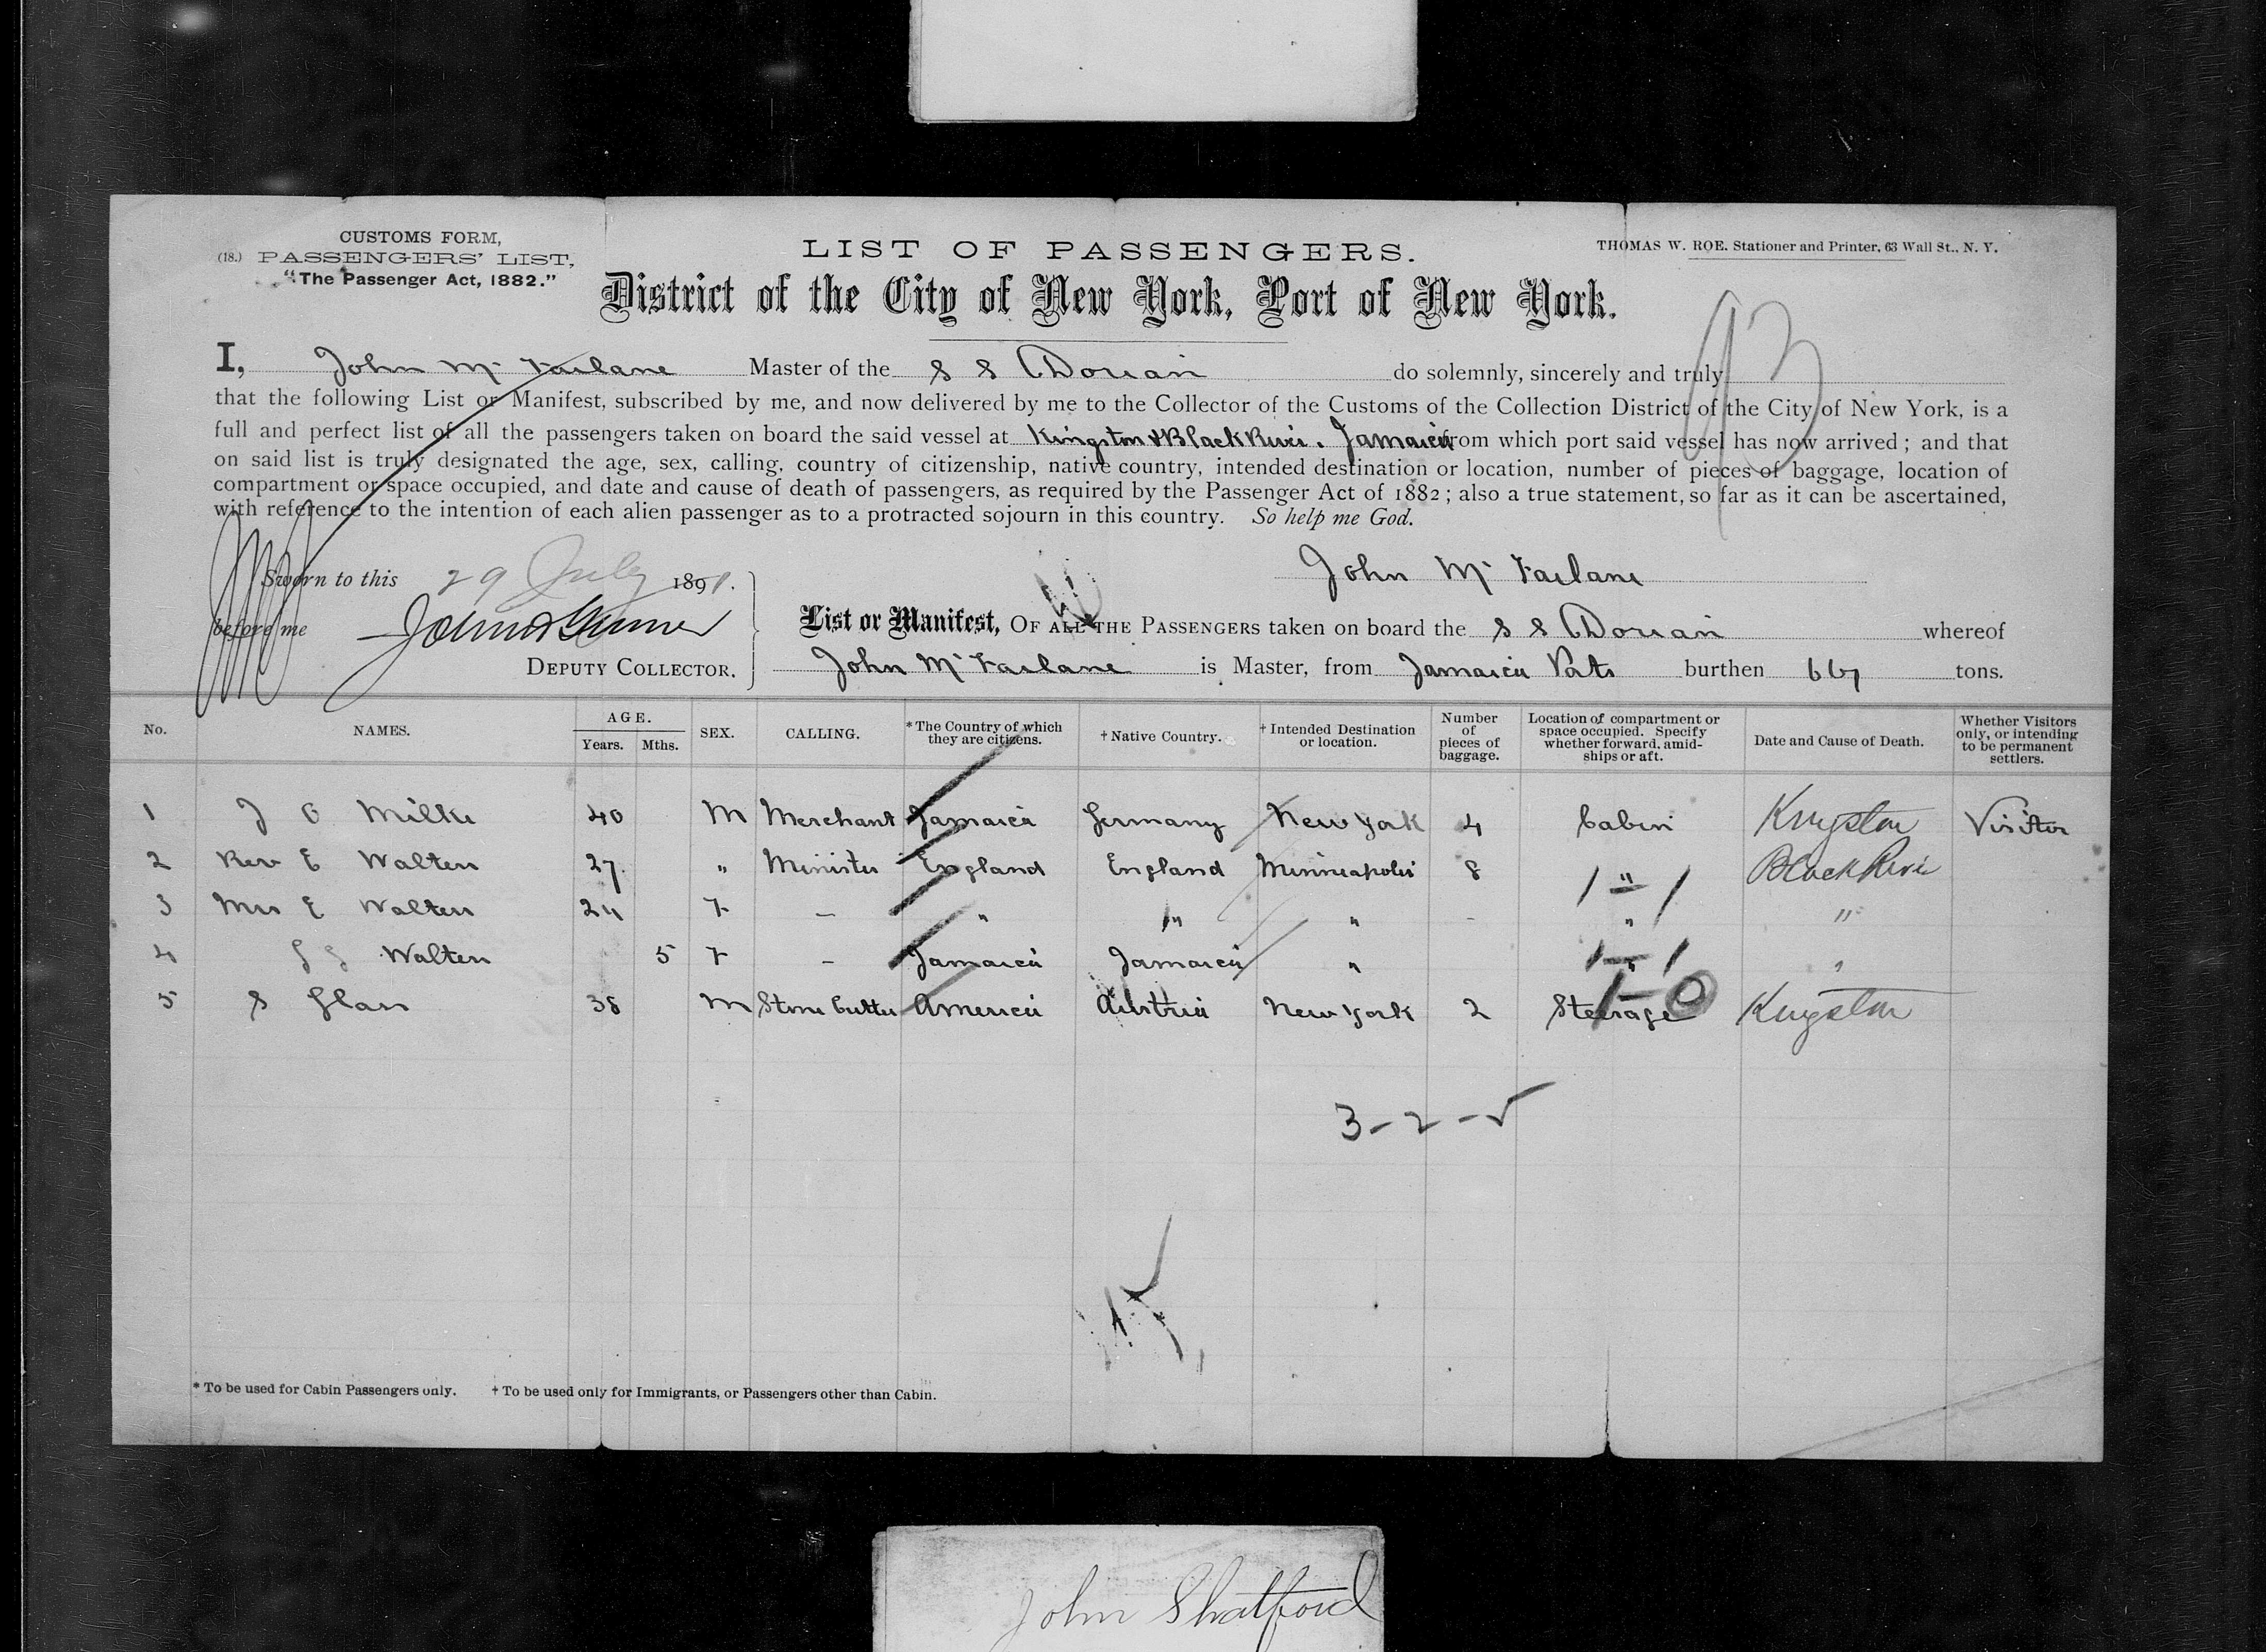 CUSTOMS FORM,
(18.) PASSENGERS' LIST,
"The Passenger Act, 1882."
LIST OF PASSENGERS.
THOMAS W. ROE. Stationer and Printer, 63 Wall St., N. Y.
District of the City of New York, Port of New York.
93
I, John McFarlane Master of the S S Dorian do solemnly, sincerely and truly
that the following List or Manifest, subscribed by me, and now delivered by me to the Collector of the Customs of the Collection District of the City of New York, is a
full and perfect list of all the passengers taken on board the said vessel at Kingston & Black River, Jamaica from which port said vessel has now arrived; and that
on said list is truly designated the age, sex, calling, country of citizenship, native country, intended destination or location, number of pieces of baggage, location of
compartment or space occupied, and date and cause of death of passengers, as required by the Passenger Act of 1882; also a true statement, so far as it can be ascertained,
with reference to the intention of each alien passenger as to a protracted sojourn in this country. So help me God.
Sworn to this 29 July 1891.
John McFarlane
before me
DEPUTY COLLECTOR.
List or Manifest, OF ALL THE PASSENGERS taken on board the S S Dorian whereof
John McFarlane is Master, from Jamaica Ports burthen 667 tons.
No. NAMES. AGE. Years. Mths. SEX. CALLING. * The Country of which they are citizens. † Native Country. † Intended Destination or location. Number of pieces of baggage. Location of compartment or space occupied. Specify whether forward, amidships or aft. Date and Cause of Death. Whether Visitors only, or intending to be permanent settlers.
1 J O Milke 40 M Merchant Jamaica Germany New York 4 Cabin Kingston Visitor
2 Rev E Walters 27 " Minister England England Minneapolis 8 " Black River
3 Mrs E Walters 24 F - " " " - " "
4 Walters 5 F - Jamaica Jamaica " " "
5 S Glass 38 M Stone Cutter America Austria New York 2 Steerage Kingston
3-2-
* To be used for Cabin Passengers only. † To be used only for Immigrants, or Passengers other than Cabin.
John Shatford